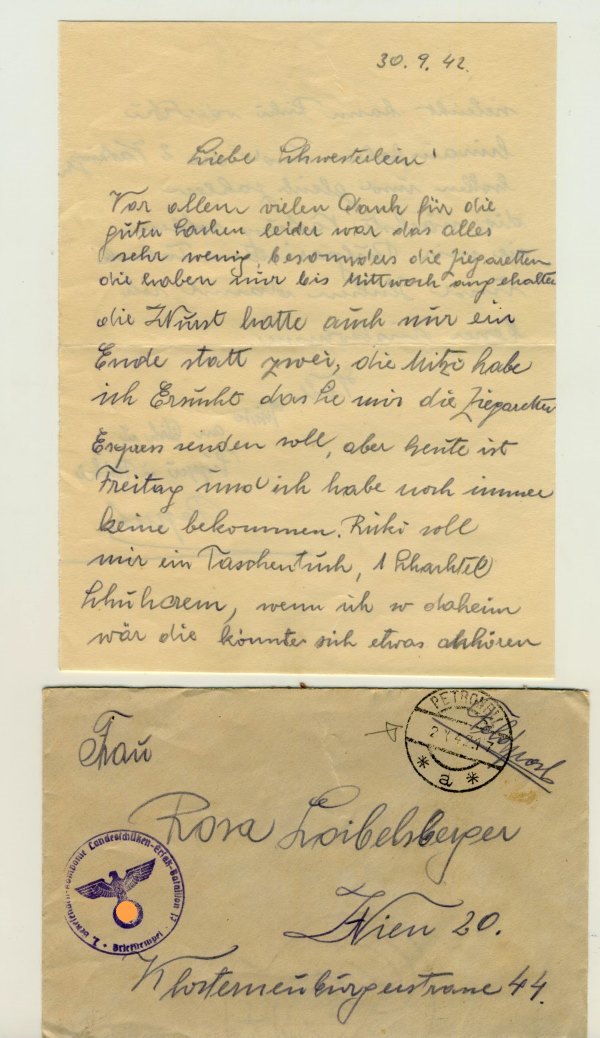 30. 9. 42.
Liebe Schwesterlein!
Vor allem vielen Dank für die
guten Sachen leider war das alles
sehr wenig, besonnders die Ziegaretten
die haben nur bis Mittwoch angehalten
die Wurst hatte auch nur ein
Ende statt zwei, die Mitzi habe
ich Ersucht das Se mir die Ziegaretten
Express senden soll, aber heute ist
Freitag und ich habe noch immer
keine bekommen. Riki soll
mir ein Taschentuch, 1 Schachtel
Schuhcrem, wenn ich so daheim
wär die könnte sich etwas anhören
PETRONELL
2. X. 42.17
* a *
Feldpost
Frau
Rosa Loibelsberger
Wien 20.
Klosterneuburgerstrasse 44.
Landesschützen-Ersatz-Bataillon 17
Briefstempel